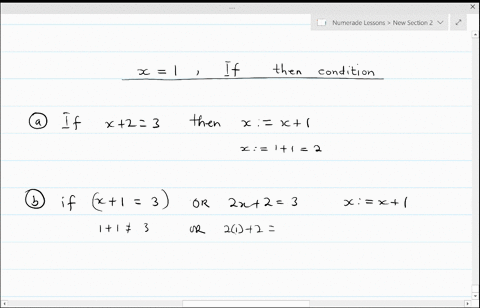 ...
Numerade Lessons > New Section 2
x = 1 , If then condition
a If x+2 = 3 then x := x+1
x := 1+1 = 2
b if (x+1 = 3) OR 2x+2 = 3 x := x+1
1+1 ≠ 3 OR 2(1)+2 =